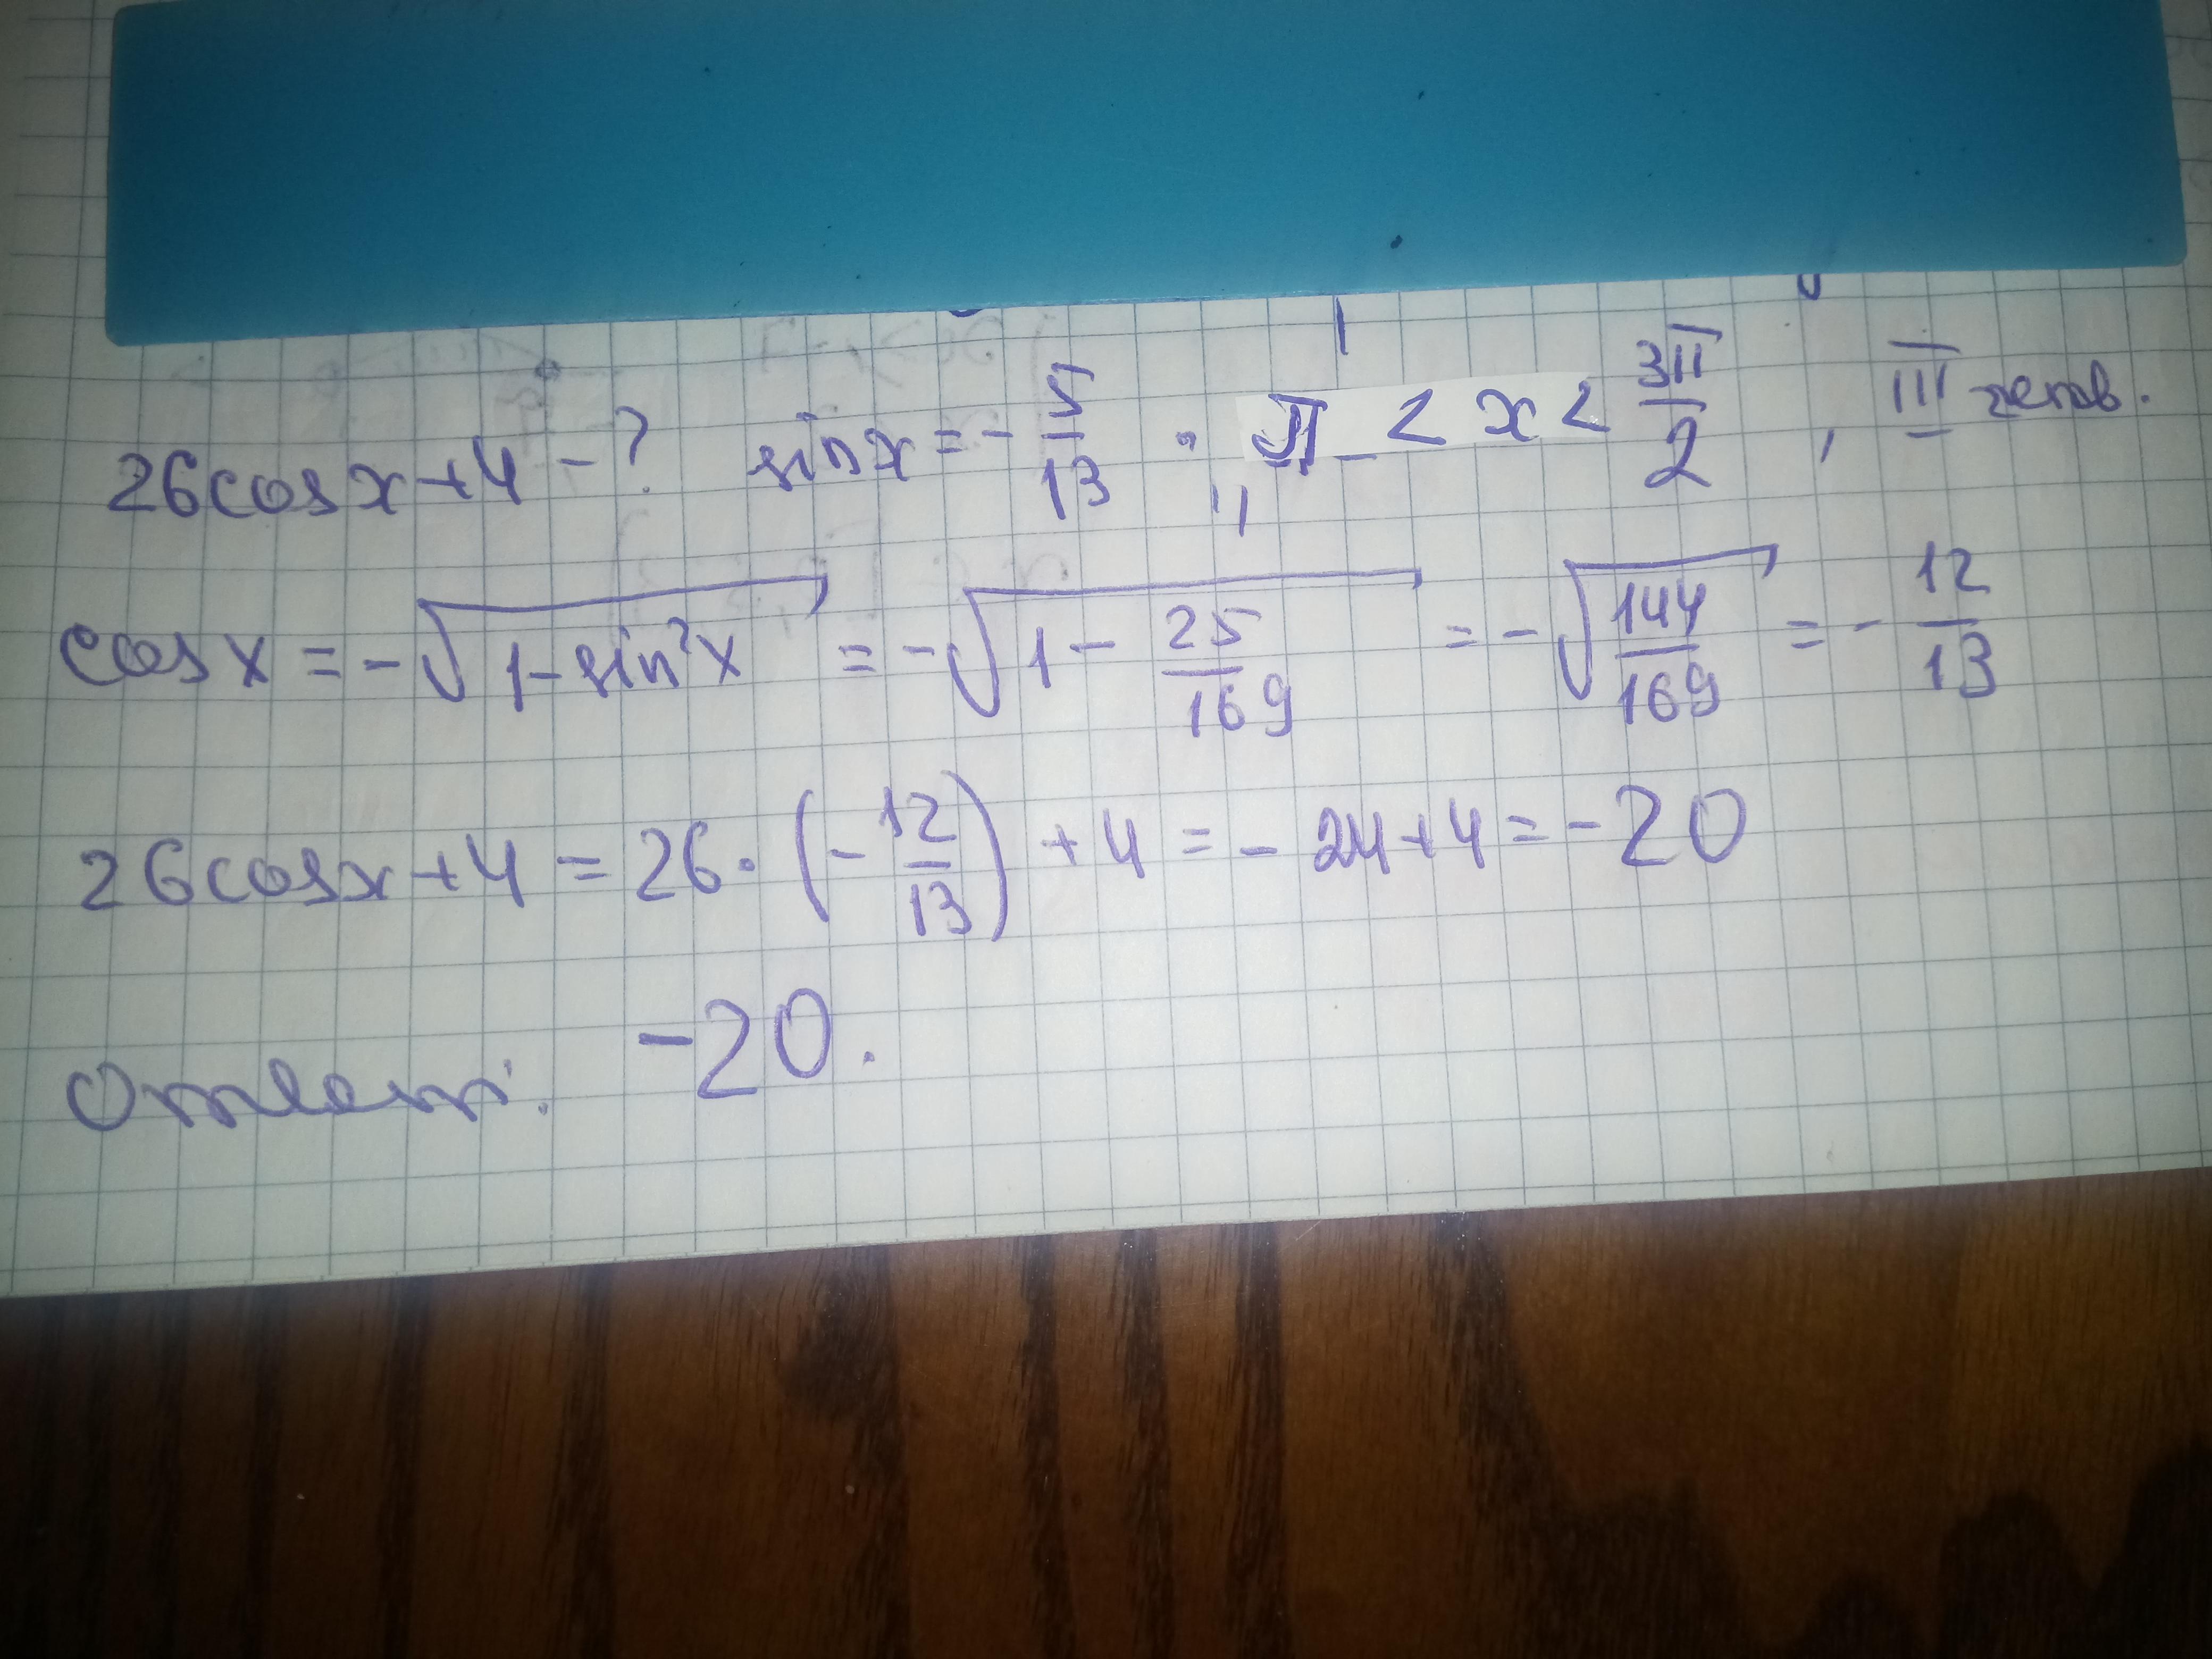 26cosx+4-? sinx=-5/13, π<x<3π/2, III четв.
cosx=-√(1-sin²x)=-√(1-25/169)=-√(144/169)=-12/13
26cosx+4=26·(-12/13)+4=-24+4=-20
Ответ: -20.